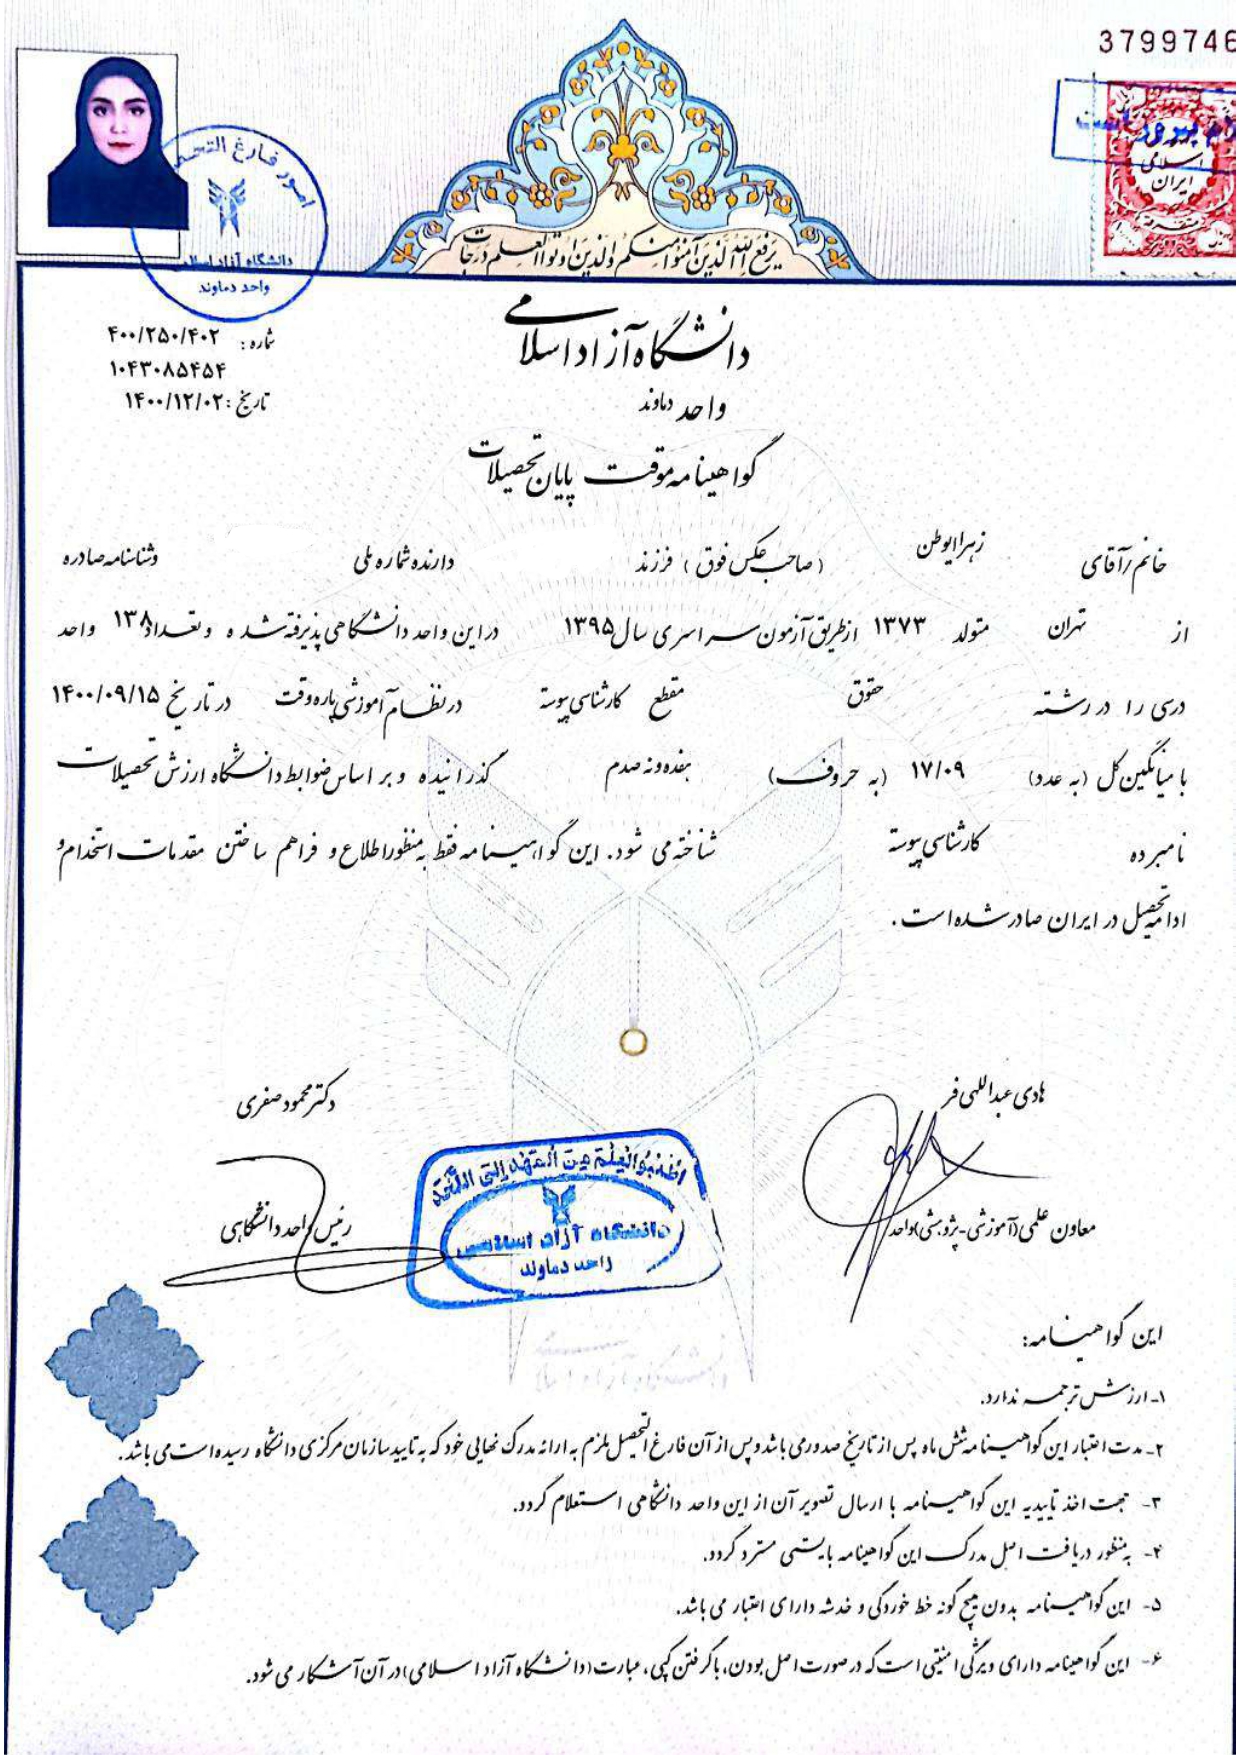 3799746
امور فارغ التحصـ
دانشگاه آزاد اسلامی
واحد دماوند
اسلامی
ایران
یرفع الله الذین آمنوا منکم والذین اوتوا العلم درجات
دانشگاه آزاد اسلامی
واحد دماوند
شماره: ۴۰۰/۲۵۰/۴۰۲
۱۰۴۳۰۸۵۴۵۴
تاریخ: ۱۴۰۰/۱۲/۰۲
گواهینامه موقت پایان تحصیلات
خانم/آقای زهرا ایوطن (صاحب عکس فوق) فرزند دارنده شماره ملی وشناسنامه صادره
از تهران متولد ۱۳۷۳ ازطریق آزمون سراسری سال ۱۳۹۵ در این واحد دانشگاهی پذیرفته شده و تعداد ۱۳۸ واحد
درسی را در رشته حقوق مقطع کارشناسی پیوسته در نظام آموزشی پاره وقت در تاریخ ۱۴۰۰/۰۹/۱۵
با میانگین کل (به عدد) ۱۷/۰۹ (به حروف) هفده و نه صدم گذرانیده و بر اساس ضوابط دانشگاه ارزش تحصیلات
نامبرده کارشناسی پیوسته شناخته می شود. این گواهینامه فقط بمنظور اطلاع و فراهم ساختن مقدمات استخدام و
ادامه تحصیل در ایران صادر شده است.
هادی عبداللهی فر
معاون علمی (آموزشی-پژوهشی) واحد
دکتر محمود صفری
رئیس واحد دانشگاهی
اطلبوا العلم من المهد الی اللحد
دانشگاه آزاد اسلامی
واحد دماوند
این گواهینامه:
۱- ارزش ترجمه ندارد.
۲- مدت اعتبار این گواهینامه شش ماه پس از تاریخ صدور می باشد و پس از آن فارغ التحصیل ملزم به ارائه مدرک نهایی خود که به تایید سازمان مرکزی دانشگاه رسیده است می باشد.
۳- جهت اخذ تاییدیه این گواهینامه با ارسال تصویر آن از این واحد دانشگاهی استعلام گردد.
۴- بمنظور دریافت اصل مدرک این گواهینامه بایستی مسترد گردد.
۵- این گواهینامه بدون هیچ گونه خط خوردگی و خدشه دارای اعتبار می باشد.
۶- این گواهینامه دارای ویژگی امنیتی است که در صورت اصل بودن، با گرفتن کپی، عبارت (دانشگاه آزاد اسلامی) در آن آشکار می شود.